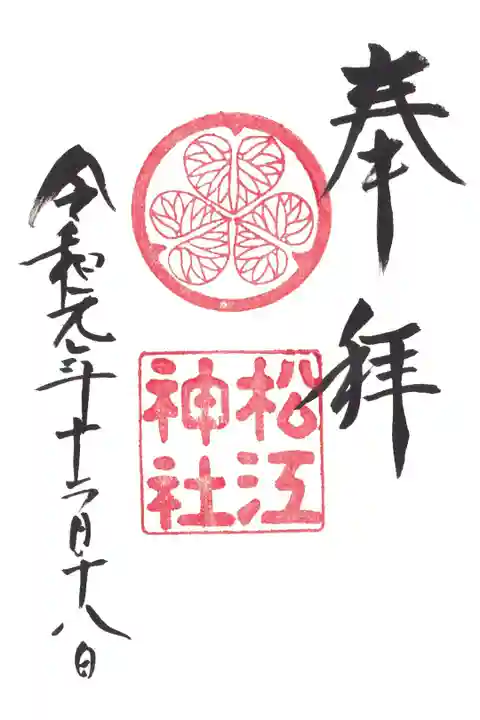 奉拝
松江
神社
令和元年十二月十八日